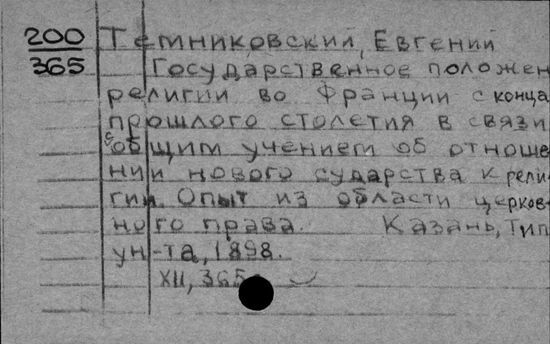 200 Темниковский, Евгений
365 Государственное положен
религии во Франции с конца
прошлого столетия в связи
с общим учением об отноше
нии нового сударства к рели
гии. Опыт из области церков-
ного права. Казань, Тип
ун-та, 1898.
XII, 365